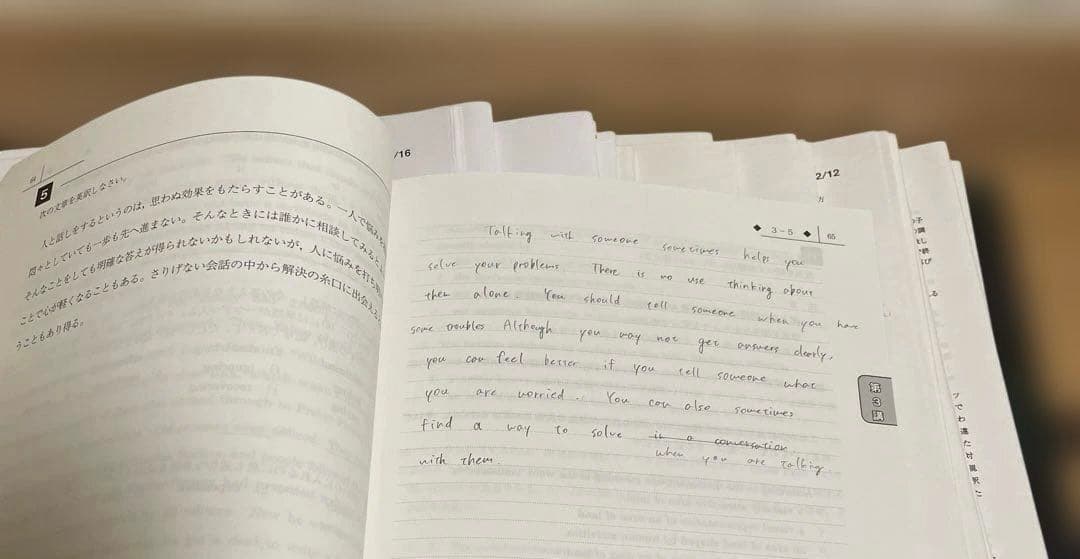 64
5
次の文章を英訳しなさい。
人と話しをするというのは，思わぬ効果をもたらすことがある。一人で悩み
悶々としていても一歩も先へ進まない。そんなときには誰かに相談してみると
そんなことをしても明確な答えが得られないかもしれないが，人に悩みを打ち
ことで心が軽くなることもある。さりげない会話の中から解決の糸口に出会え
うこともあり得る。
/16
2/12
◆ 3-5 ◆ 65
Talking with someone sometimes helps you
solve your problems. There is no use thinking about
them alone. You should tell someone when you have
some troubles Although you may not get answers clearly,
you can feel better if you tell someone what
you are worried. You can also sometimes
find a way to solve in a conversation
when you are talking
with them.
第3講